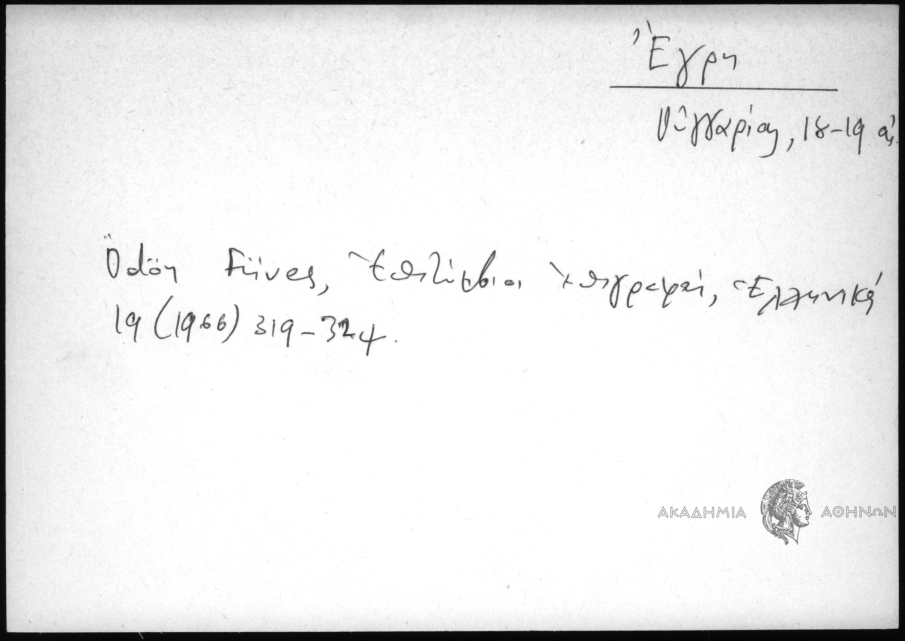 Ἔγρη
Οὑγγαρίας, 18-19 αἰ.
Ödön Füves, Ἐπιτύμβιοι ἐπιγραφαί, Ἑλληνικά
19 (1966) 319-324.
ΑΚΑΔΗΜΙΑ ΑΘΗΝΩΝ